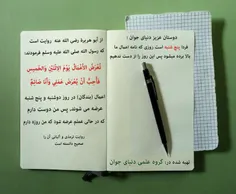 دوستان عزیز دنیای جوان
فردا پنج شنبه است روزی که نامه اعمال ما
بالا برده میشود پس این روز را از دست ندهیم
از أبو هریرة رضی الله عنه روایت است
که رسول الله صلی الله علیه وسلم فرمودند:
تُعْرَضُ الأَعْمَالُ يَوْمَ الاِثْنَيْنِ وَالْخَمِيسِ
فَأُحِبُّ أَنْ يُعْرَضَ عَمَلِي وَأَنَا صَائِمٌ
اعمال (بندگان) در روز دوشنبه و پنج شنبه
عرضه می شوند، پس من دوست دارم
که در حالی عملم عرضه شود که من روزه دارم
روایت ترمذی و آلبانی آن را
صحیح دانسته است
تهیه شده در: گروه علمی دنیای جوان